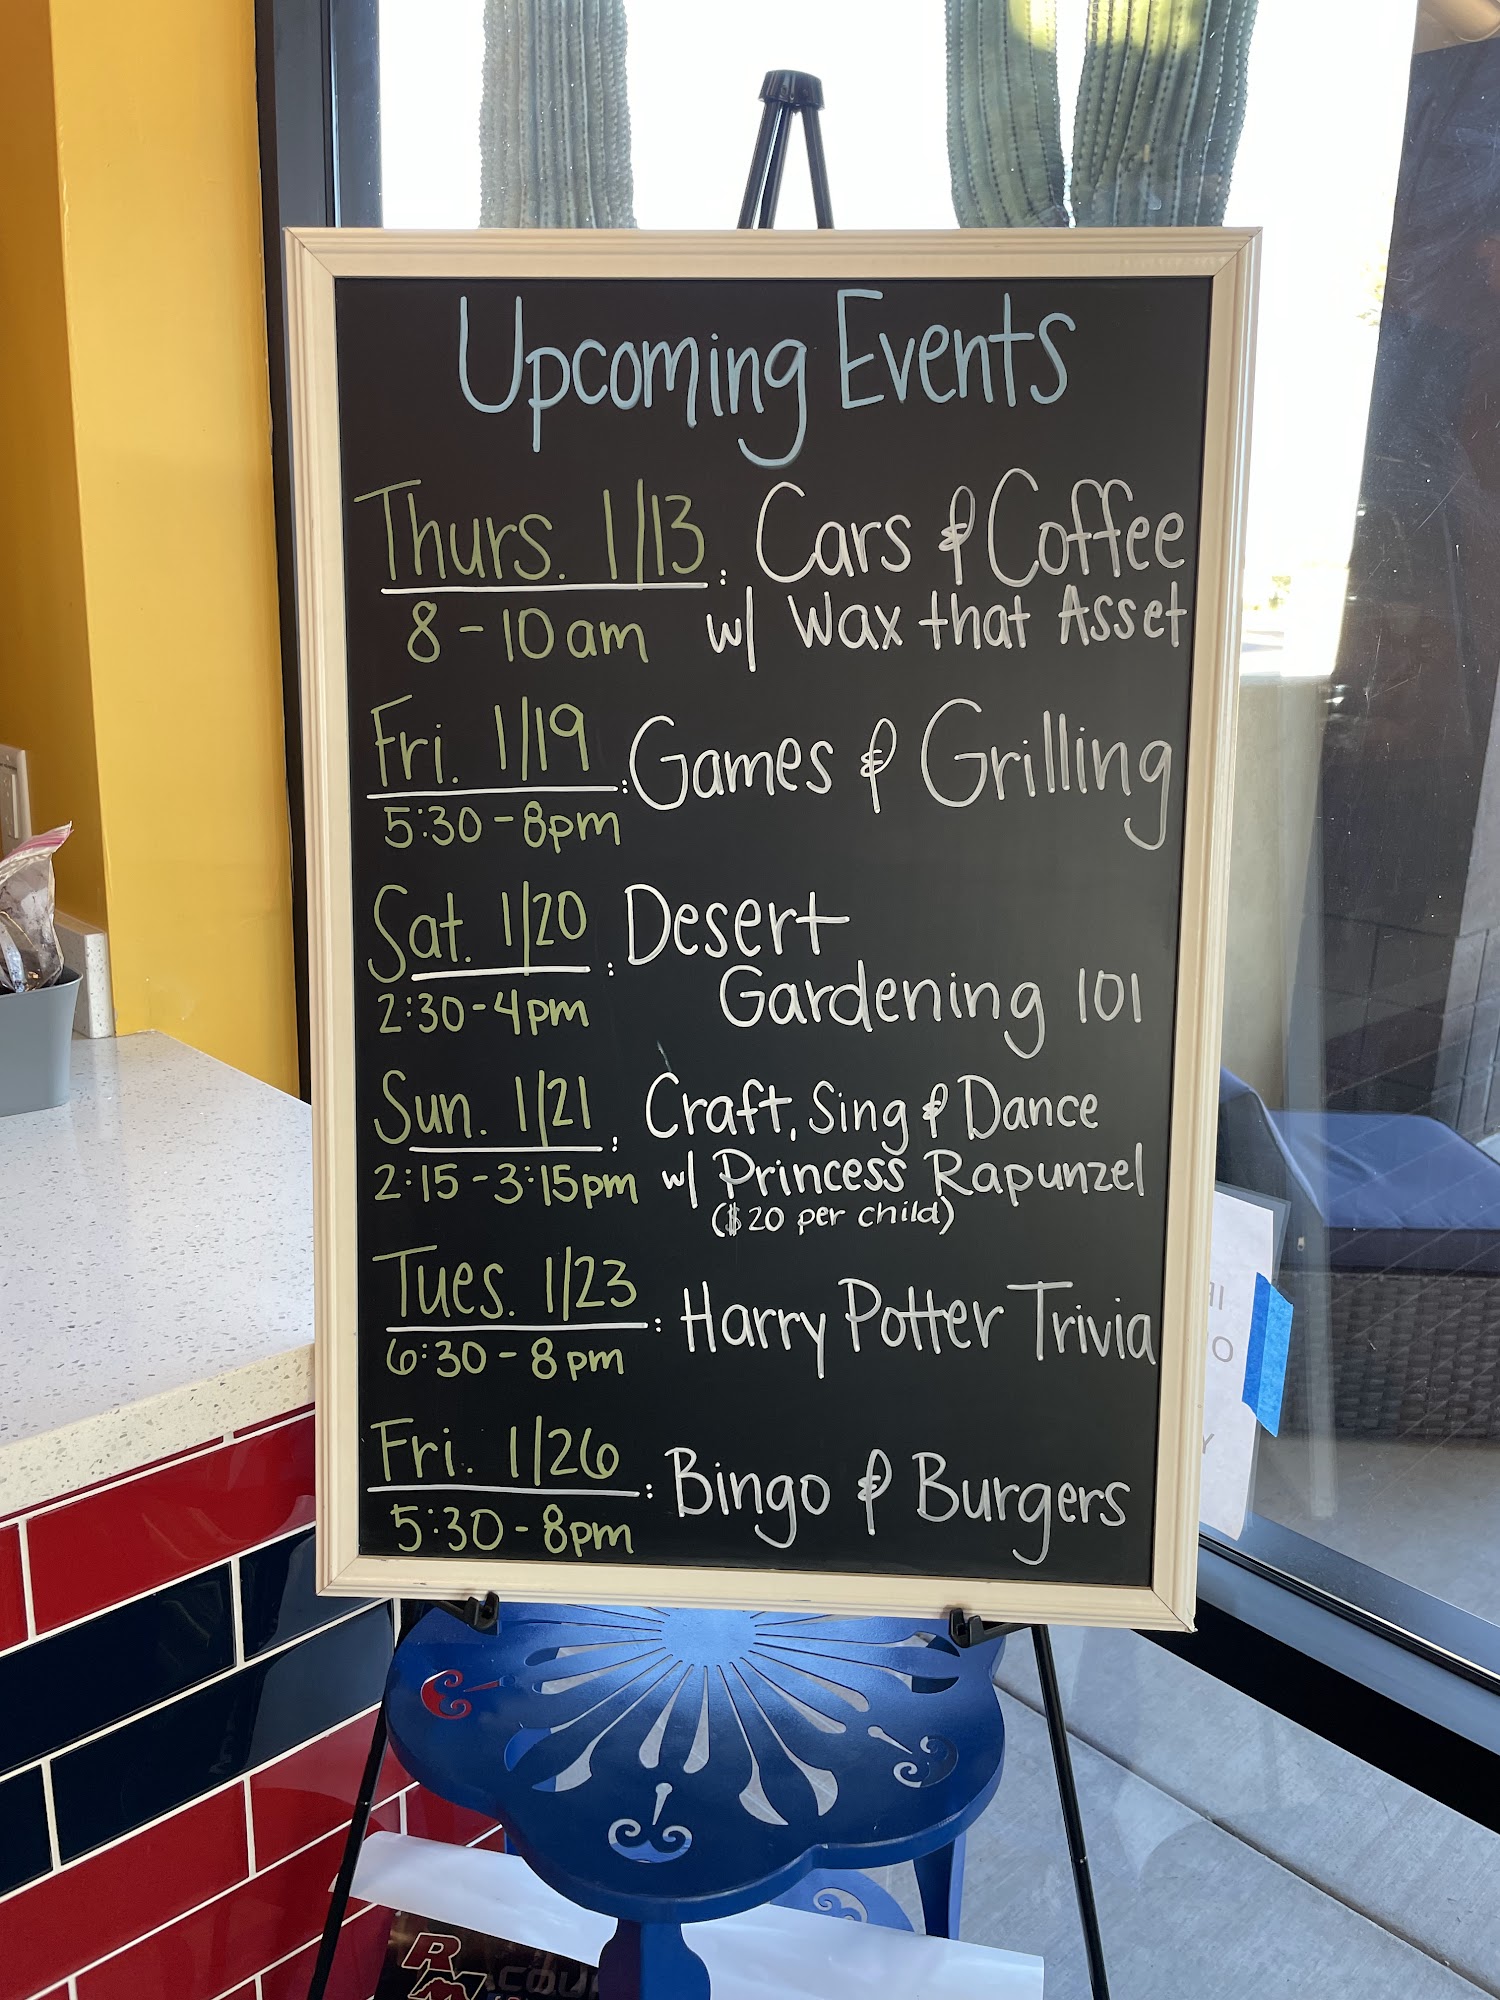 Upcoming Events
Thurs. 1/13: Cars & Coffee
8-10am w/ Wax that Asset
Fri. 1/19: Games & Grilling
5:30-8pm
Sat. 1/20: Desert
2:30-4pm Gardening 101
Sun. 1/21: Craft, Sing & Dance
2:15-3:15pm w/ Princess Rapunzel
($20 per child)
Tues. 1/23: Harry Potter Trivia
6:30-8pm
Fri. 1/26: Bingo & Burgers
5:30-8pm
RM